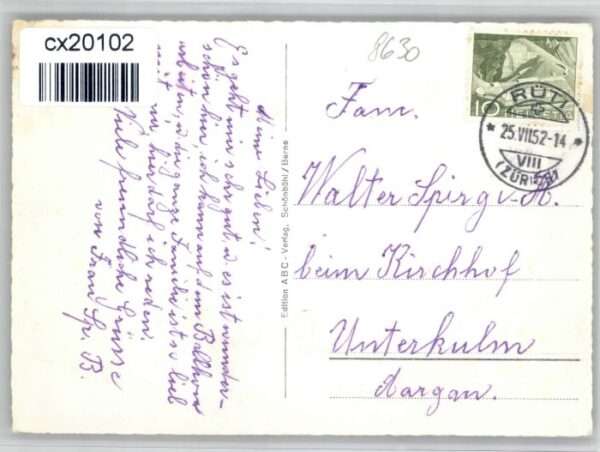 cx20102
8630
10
RÜTI
25.VII.52-14
VIII
(ZÜRICH)
Fam.
Walter Spirgi-H.
beim Kirchhof
Unterkulm
Aargau.
Edition ABC-Verlag, Schönbühl/Berne
Meine Lieben!
Es geht mir sehr gut, es ist wunder-
schön hier, ich kann auf dem Balkon
arbeiten, u. die ganze Familie ist so lieb
mit
Viele freundliche Grüsse
von Frau Sp. B.